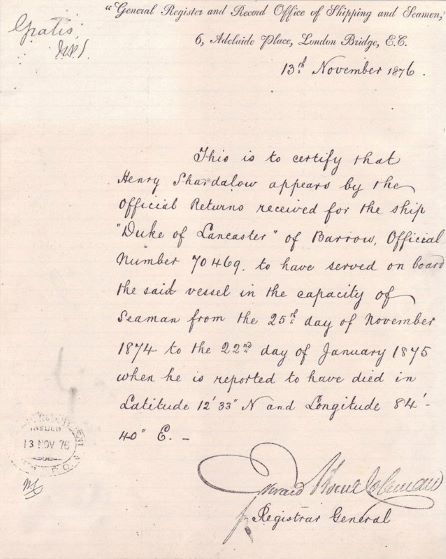 "General Register and Record Office of Shipping and Seamen,"
6, Adelaide Place, London Bridge, E.C.
Gratis
13th November 1876.
This is to certify that
Henry Shardalow appears by the
Official Returns received for the ship
"Duke of Lancaster" of Barrow, Official
Number 70469. to have served on board
the said vessel in the capacity of
Seaman from the 25th day of November
1874 to the 22nd day of January 1875
when he is reported to have died in
Latitude 12' 33" N and Longitude 84'-
40" E. -
ISSUED
13 NOV 76
Registrar General